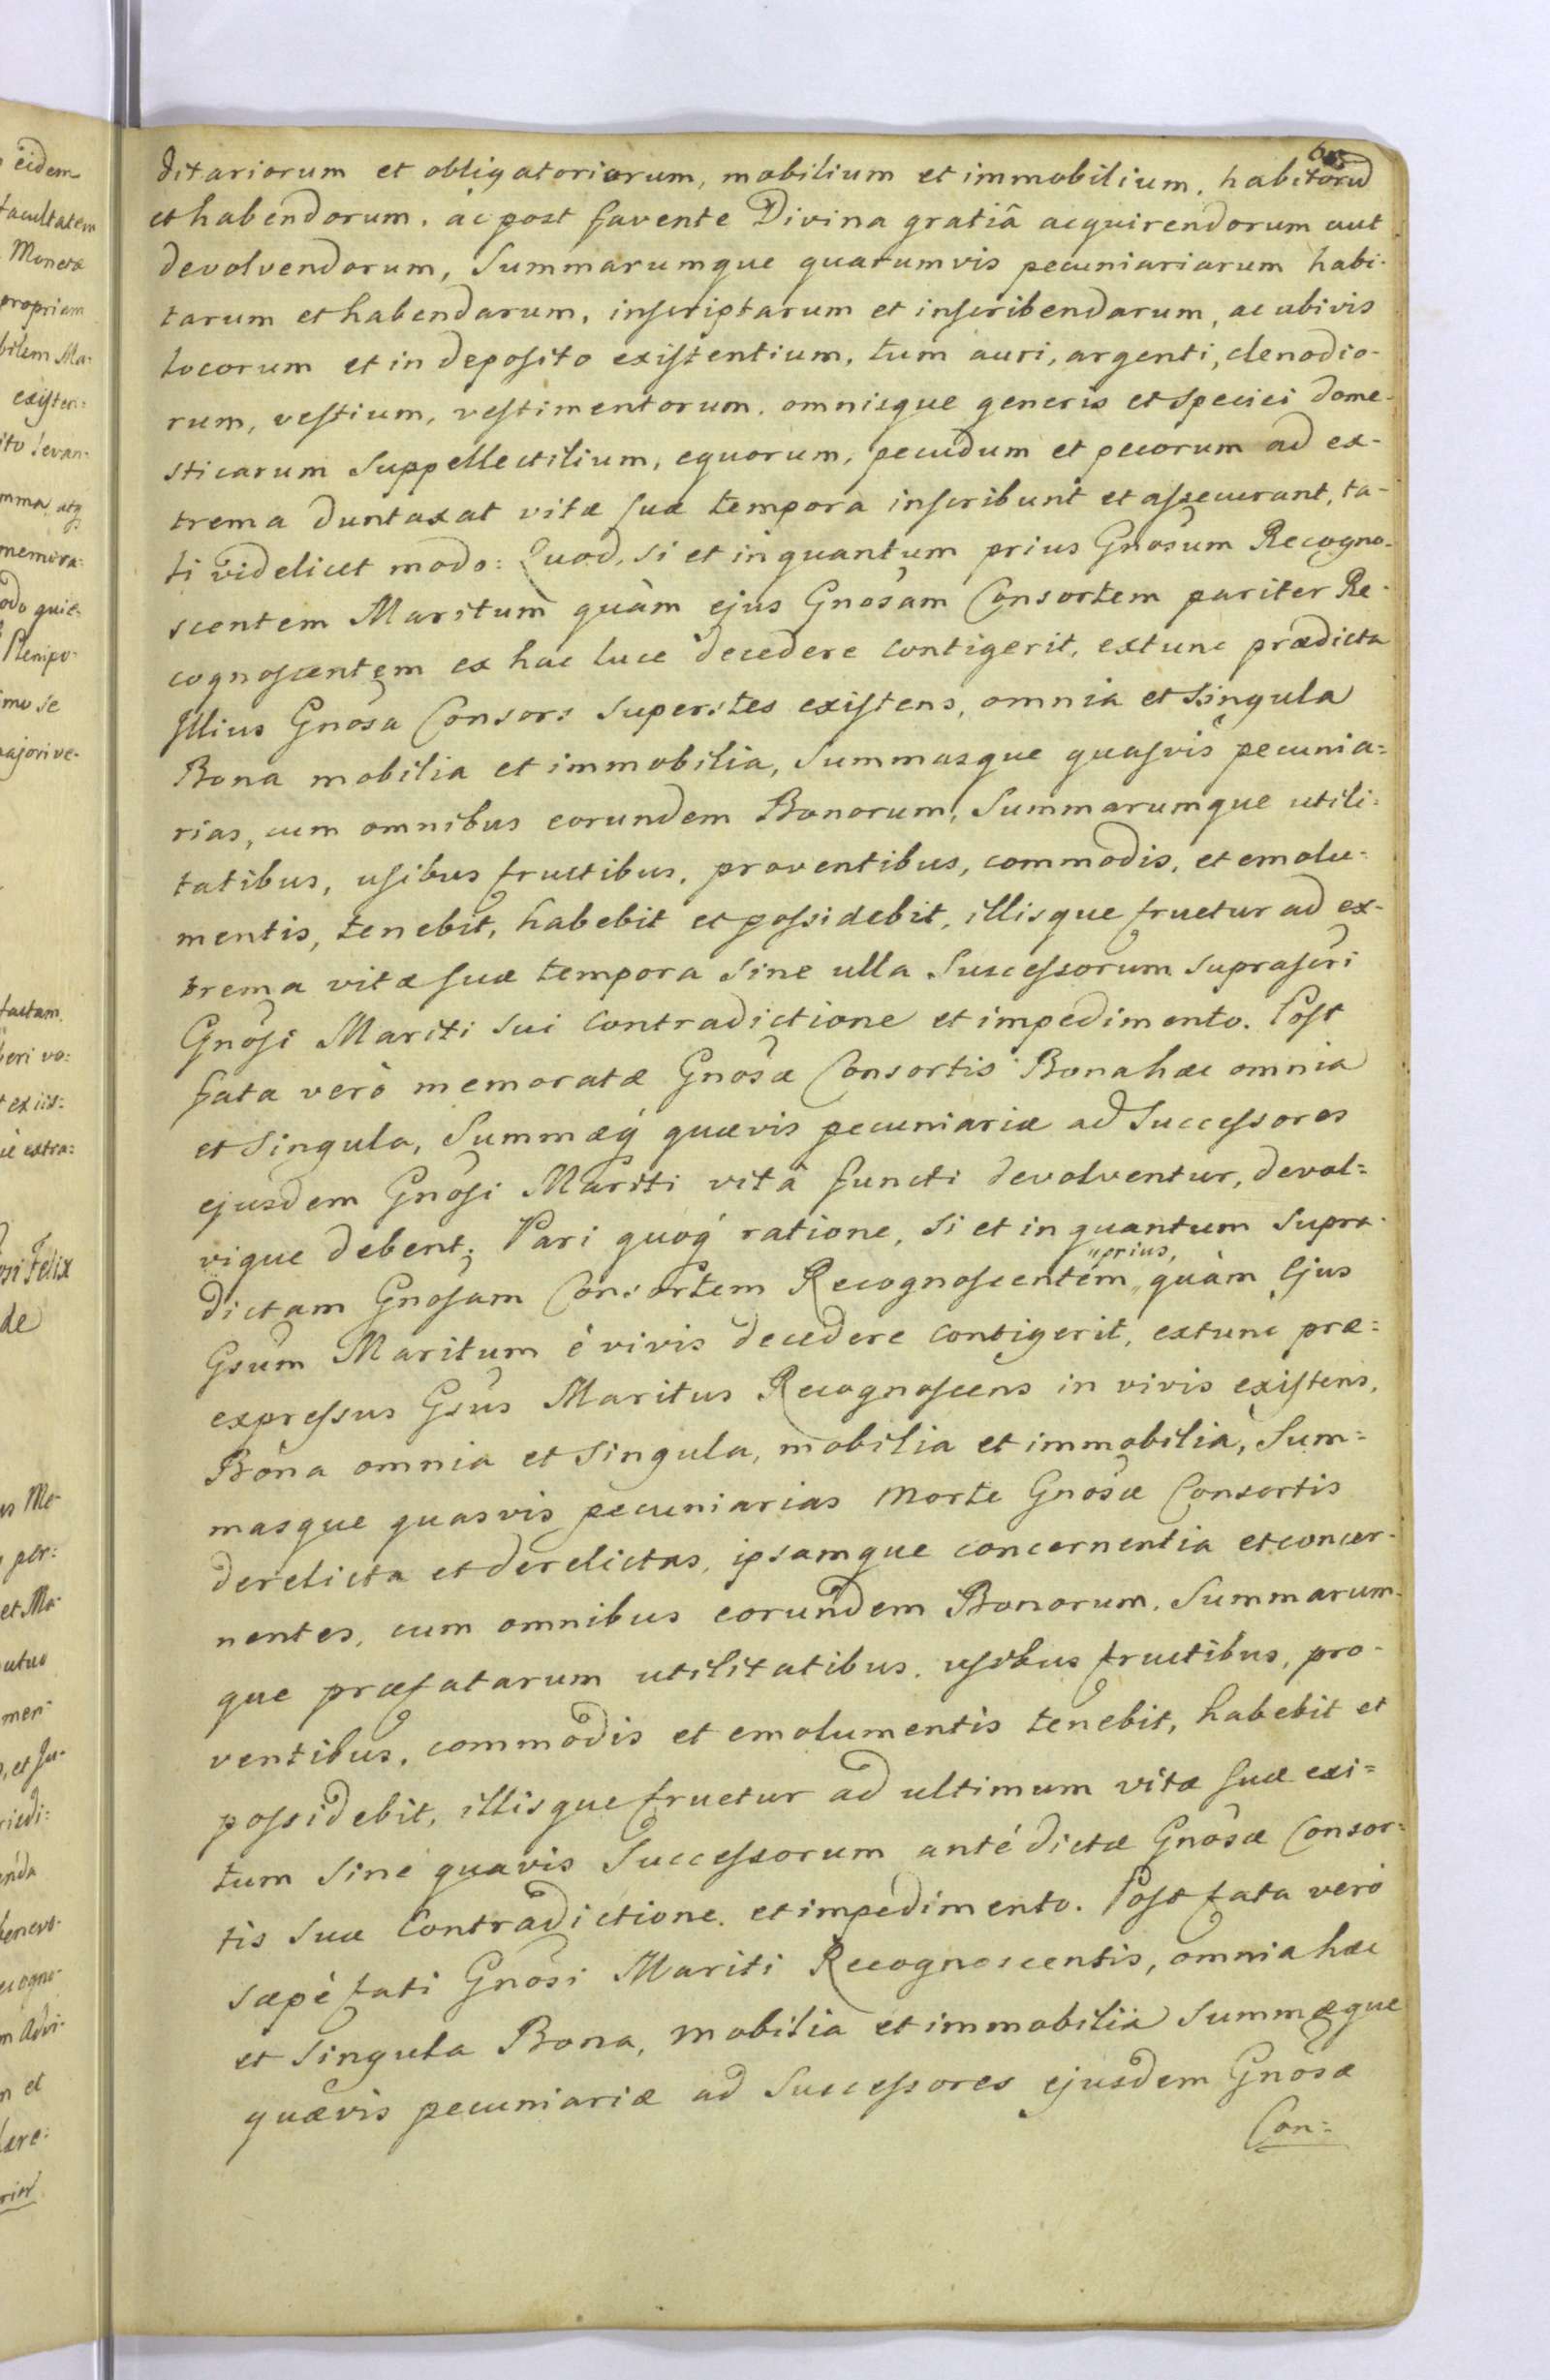 ditariorum et obligatoriorum, mobilium et immobilium, habitorũ
et habendorum, ac post favente Divina gratiâ acquirendorum aut
devolvendorum, Summarumque quarumvis pecuniariarum habi-
tarum et habendarum, inscriptarum et inscribendarum, ac ubivis
locorum et in deposito existentium, tum auri, argenti, clenodio-
rum, vestium, vestimentorum, omnisque generis et speciei dome-
sticarum Suppellectilium, equorum, pecudum et pecorum ad ex-
trema duntaxat vitæ suæ tempora inscribunt et assecurant, ta-
li videlicet modo: Quod, si et inquantum prius Gnosum Recogno-
scentem Maritum quàm ejus Gnosam Consortem pariter Re-
cognoscentem ex hac luce decedere contigerit, extunc prædicta
Illius Gnosa Consors Superstes existens, omnia et Singula
Bona mobilia et immobilia, Summasque quasvis pecunia=
rias, cum omnibus eorundem Bonorum, Summarumque utili=
tatibus, usibus fructibus, proventibus, commodis, et emolu=
mentis, tenebit, habebit et possidebit, illisque fruetur ad ex-
trema vitæ suæ tempora Sine ulla Successorum suprascri
Gnosi Mariti Sui Contradictione et impedimento. Post
fata verò memoratæ Gnosæ Consortis Bona hæc omnia
et Singula, Summæq́ quævis pecuniariæ ad Successores
ejusdem Gnosi Mariti vitâ functi devolventur, devol=
vique debent; Pari quoq́ ratione, si et in quantum Supra-
dictam Gnosam Consortem Recognoscentem "prius, quàm Ejus
Gsum Maritum è vivis decedere contigerit, extunc præ=
expressus Gsus Maritus Recognoscens in vivis existens,
Bona omnia et Singula, mobilia et immobilia, Sum=
masque quasvis pecuniarias Morte Gnosæ Consortis
derelicta et derelictas, ipsamque concernentia et concer-
nentes, cum omnibus eorundem Bonorum, Summarum-
que præfatarum utilitatibus, usibus fructibus, pro-
ventibus, commodis et emolumentis tenebit, habebit et
possidebit, illisque fruetur ad ultimum vitæ suæ exi=
tum Sine quavis Successorum antè dictæ Gnosæ Consor=
tis Suæ Contradictione, et impedimento. Post fata verò
Sæpè fati Gnosi Mariti Recognoscentis, omnia hæc
et Singula Bona, mobilia et immobilia Summæque
quævis pecuniariæ ad Successores ejusdem Gnosæ
Con=